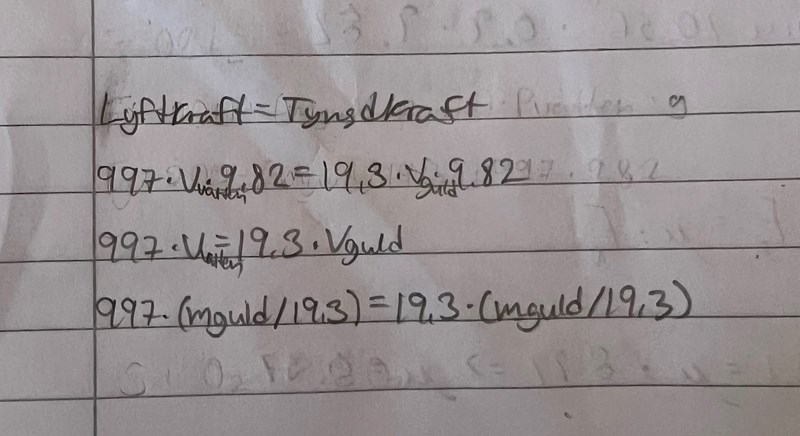 Lyftkraft = Tyngdkraft
997 · Vvatten · 9,82 = 19,3 · Vguld · 9,82
997 · Vvatten = 19,3 · Vguld
997 · (mguld/19,3) = 19,3 · (mguld/19,3)